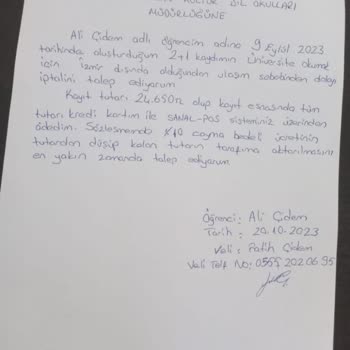 KÜLTÜR DİL OKULLARI
MÜDÜRLÜĞÜNE
Ali Çidem adlı öğrencim adına 9 Eylül 2023
tarihinde oluşturduğum 2+1 kaydımın Üniversite okumak
için İzmir dışında olduğundan ulaşım sebebinden dolayı
iptalini talep ediyorum
Kayıt tutarı 24.650₺ olup kayıt esnasında tüm
tutarı kredi kartım ile SANAL-POS sisteminiz üzerinden
ödedim. Sözleşmedeki %10 cayma bedeli ücretinin
tutardan düşüp kalan tutarın tarafıma aktarılmasını
en yakın zamanda talep ediyorum
Öğrenci: Ali Çidem
Tarih: 20.10.2023
Veli: Fatih Çidem
Veli Telf No: 0555 202 06 95